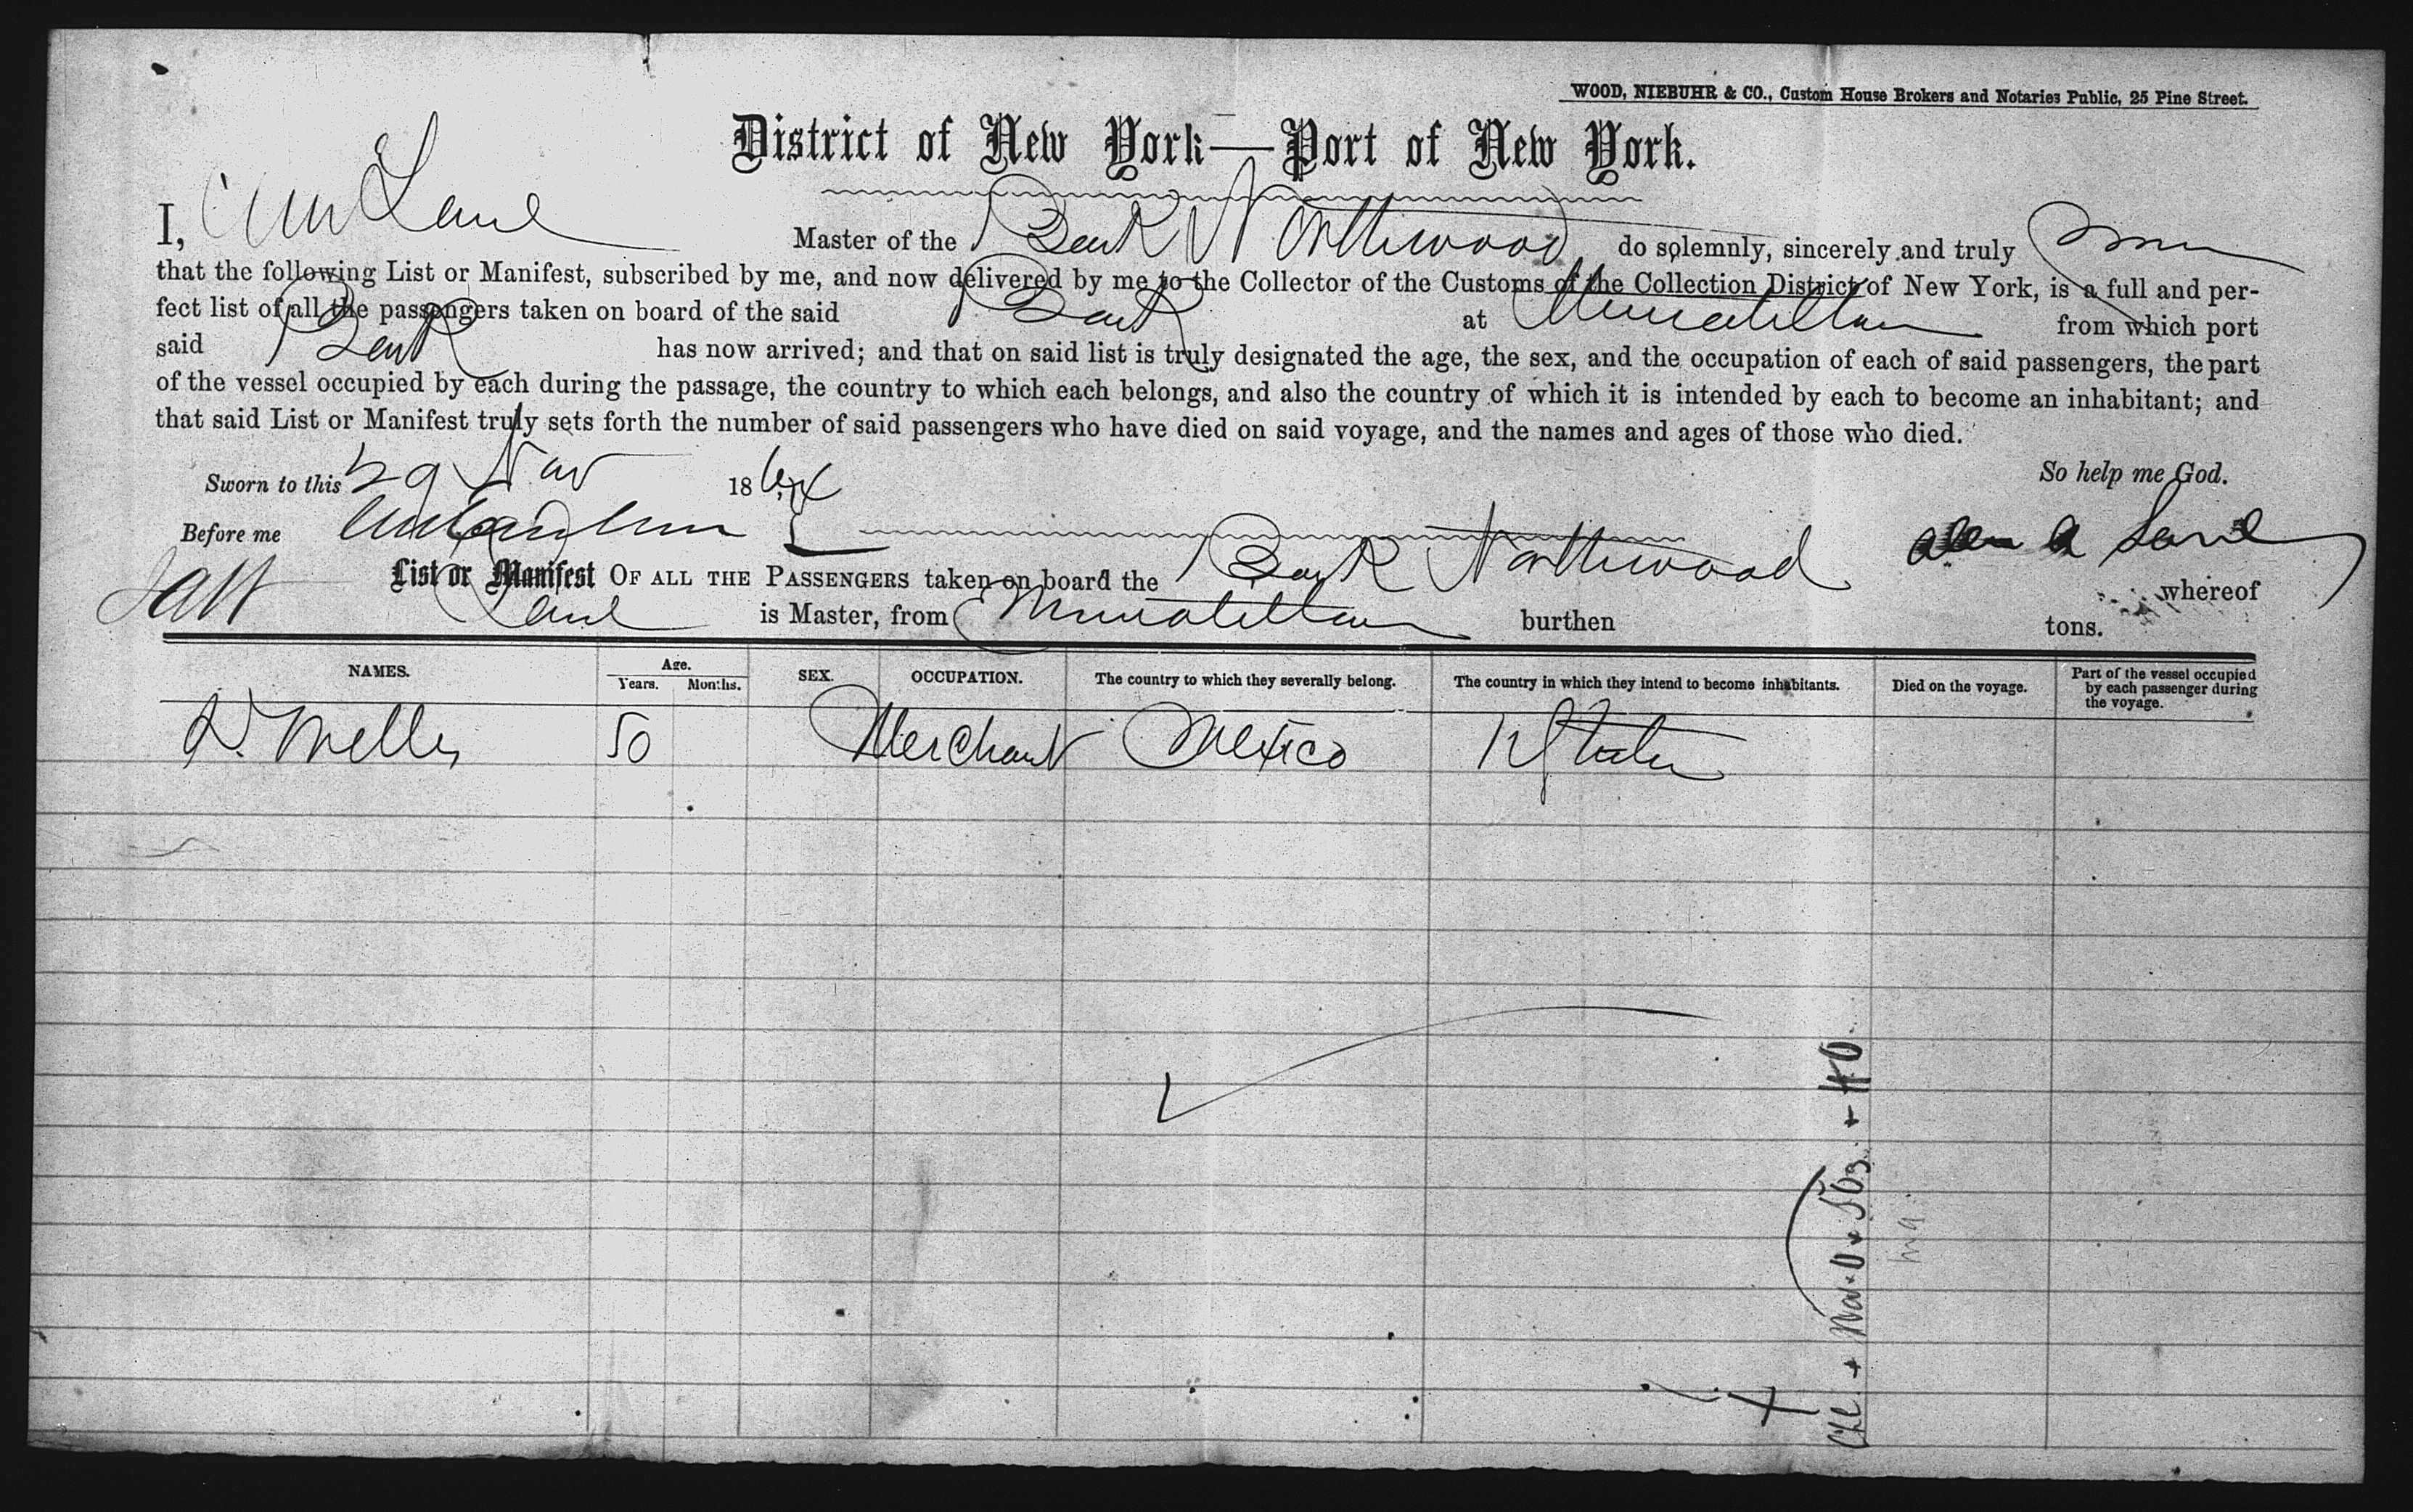 WOOD, NIEBUHR & CO., Custom House Brokers and Notaries Public, 25 Pine Street.
District of New York—Port of New York.
I, Lane Master of the Bark Northwood do solemnly, sincerely and truly
that the following List or Manifest, subscribed by me, and now delivered by me to the Collector of the Customs of the Collection District of New York, is a full and per-
fect list of all the passengers taken on board of the said Bark at Minatitlan from which port
said Bark has now arrived; and that on said list is truly designated the age, the sex, and the occupation of each of said passengers, the part
of the vessel occupied by each during the passage, the country to which each belongs, and also the country of which it is intended by each to become an inhabitant; and
that said List or Manifest truly sets forth the number of said passengers who have died on said voyage, and the names and ages of those who died.
Sworn to this 29 Nov 186 So help me God.
Before me
List or Manifest OF ALL THE PASSENGERS taken on board the Bark Northwood whereof
Lane is Master, from Minatitlan burthen tons.
NAMES. Age. Years. Months. SEX. OCCUPATION. The country to which they severally belong. The country in which they intend to become inhabitants. Died on the voyage. Part of the vessel occupied by each passenger during the voyage.
50 Merchant Mexico States